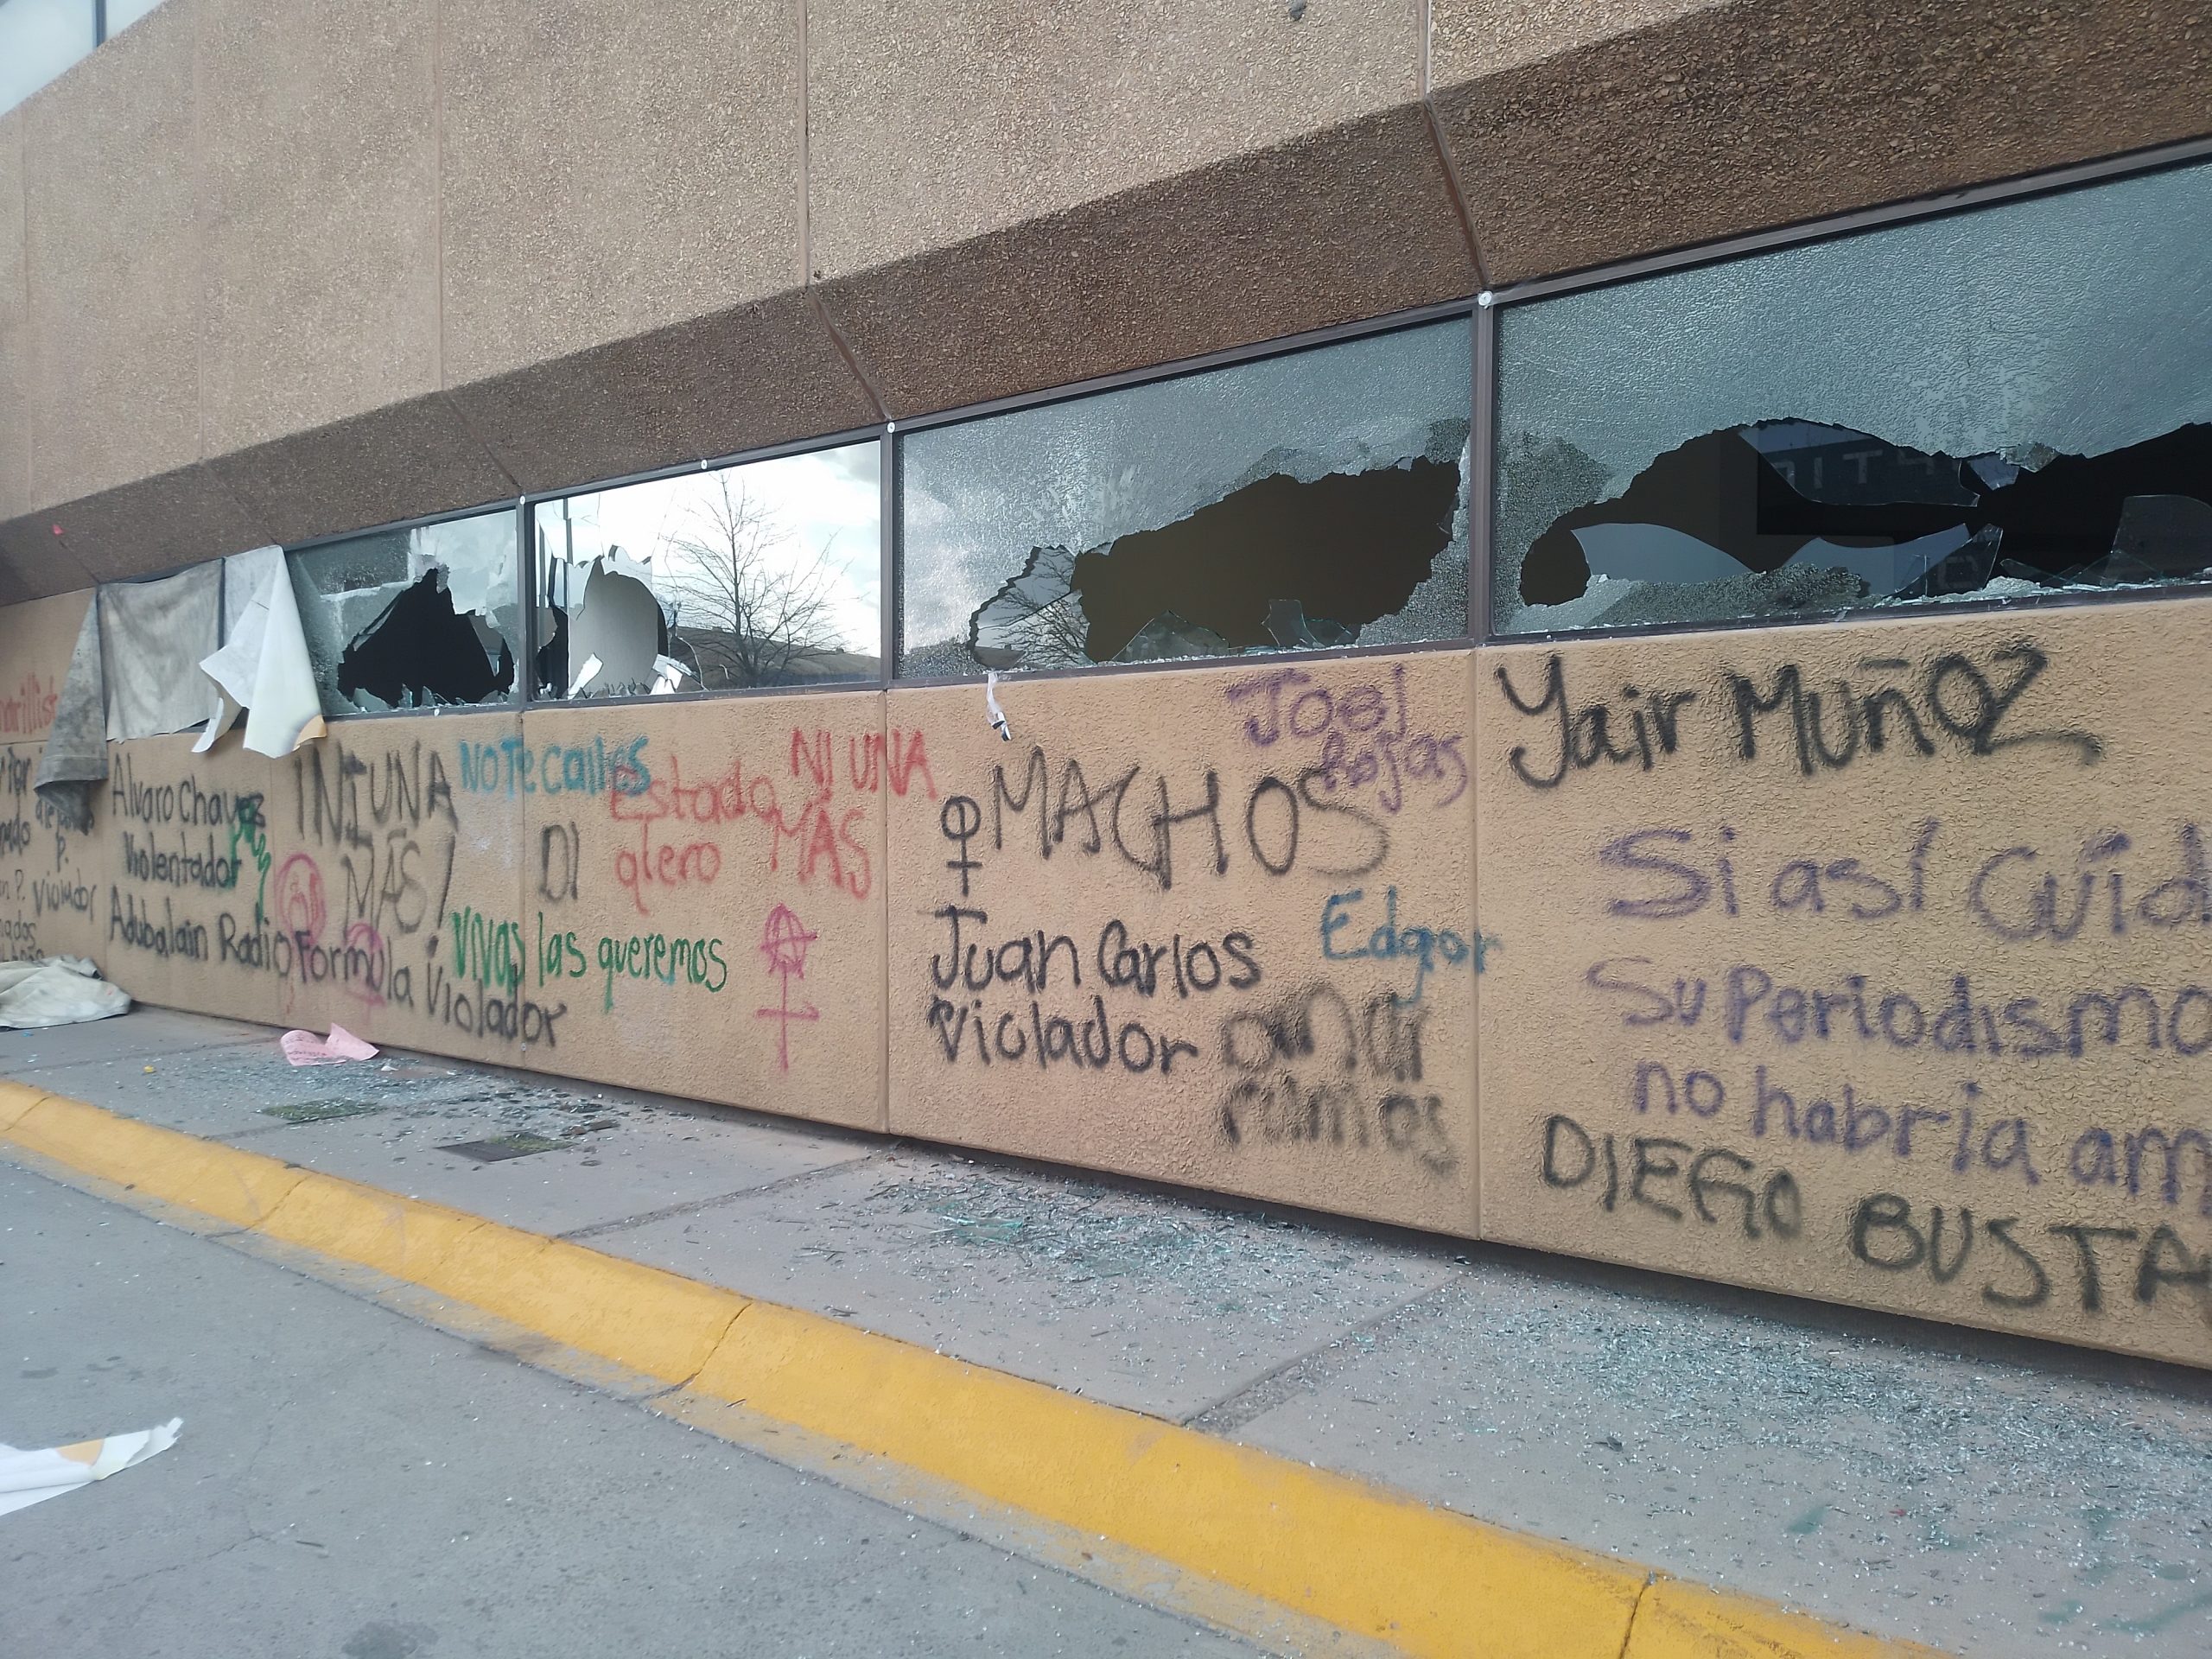 Alvaro Chavez
Violentador
Adubalain Radio Formula Violador
P.
Violador
¡NI UNA
MÁS!
NO Te calles
Estado
NI UNA
MÁS
DI
Vivas las queremos
MACHOS
Joel
Rojas
Juan Carlos
Violador
Edgar
ramos
Yair Muñoz
Si así
Su Periodismo
no habría am
DIEGO BUSTA